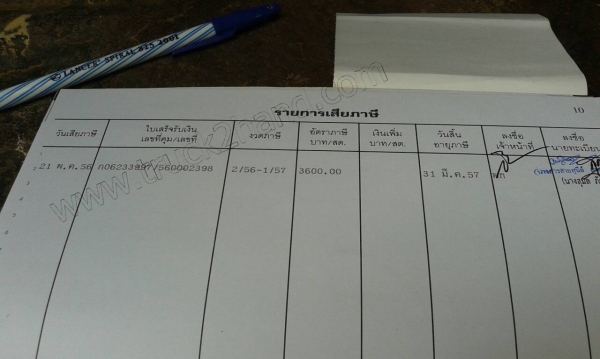 LANCER SPIRAL 825 2001
รายการเสียภาษี
10
วันเสียภาษี
ใบเสร็จรับเงิน
เลขที่คุม/เลขที่
งวดภาษี
อัตราภาษี
บาท/สต.
เงินเพิ่ม
บาท/สต.
วันสิ้น
อายุภาษี
ลงชื่อ
เจ้าหน้าที่
ลงชื่อ
นายทะเบียน
21 พ.ค.56 ก06233997/560002398 2/56-1/57 3600.00 31 มี.ค.57
www.truck2hand.com